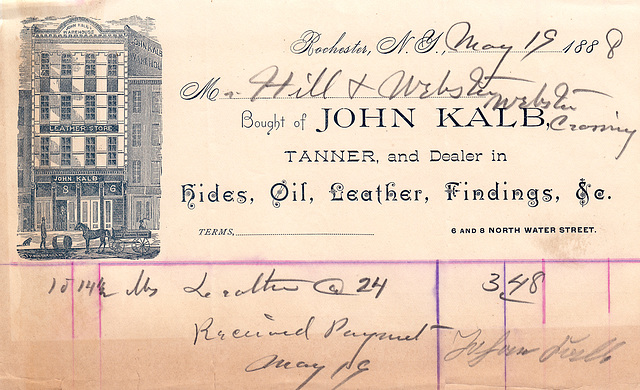 JOHN KALB'S
WAREHOUSE
JOHN KALB
LEATHER STORE
JOHN KALB
8 6
Rochester, N. Y., May 19 1888
Mr Hill & Webster
Webster
Crossing
Bought of JOHN KALB,
TANNER, and Dealer in
Hides, Oil, Leather, Findings, &c.
TERMS,
6 AND 8 NORTH WATER STREET.
14½ lbs Leather @ 24 3.48
Received Payment
May 19